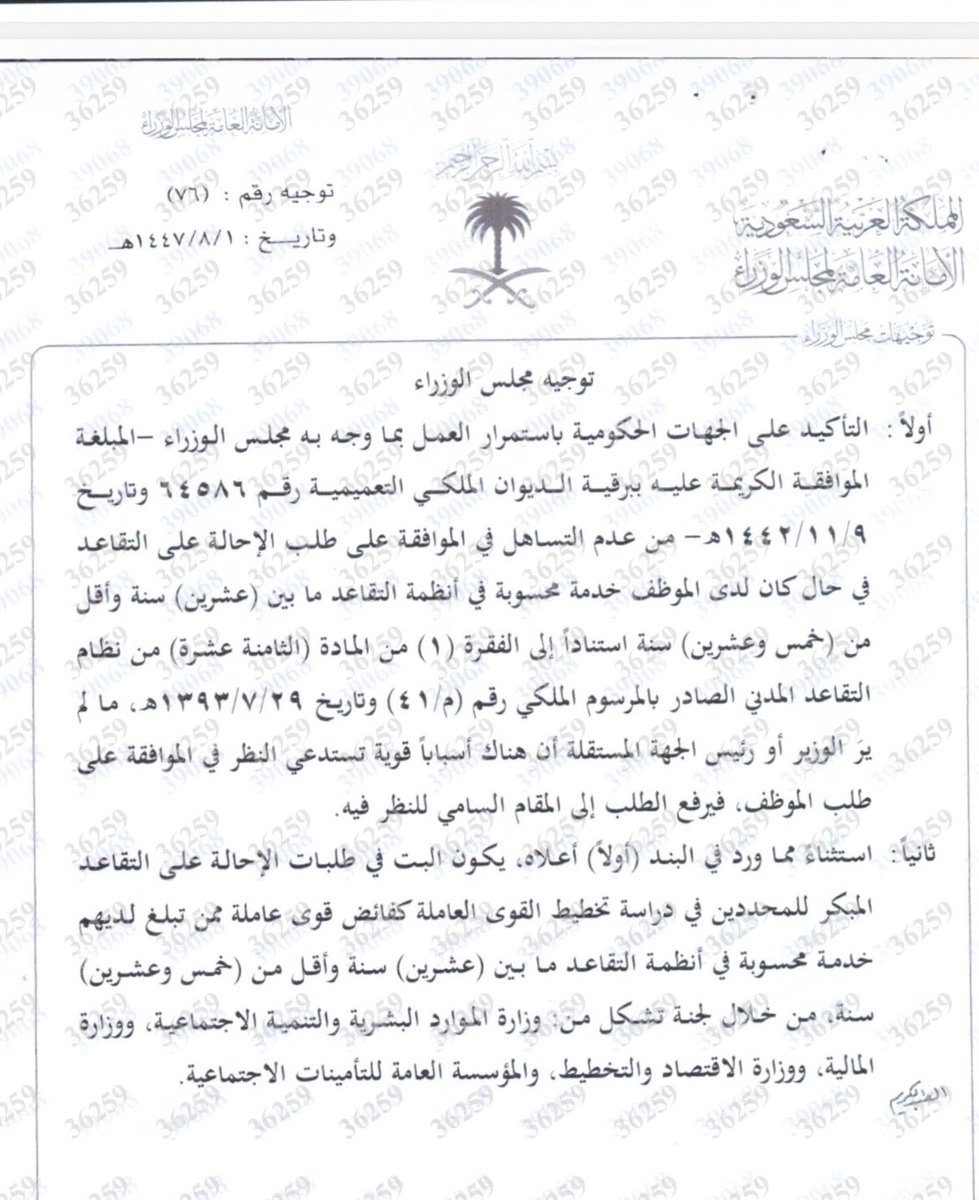 الأمانة العامة لمجلس الوزراء
بسم الله الرحمن الرحيم
توجيه رقم : (٧٦)
وتاريخ : ١٤٤٧/٨/١هـ
المملكة العربية السعودية
الأمانة العامة لمجلس الوزراء
توجيهات مجلس الوزراء
توجيه مجلس الوزراء
أولاً : التأكيد على الجهات الحكومية باستمرار العمل بما وجه به مجلس الوزراء –المبلغة
الموافقة الكريمة عليه ببرقية الديوان الملكي التعميمية رقم ٦٤٥٨٦ وتاريخ
١٤٤٢/١١/٩هـ– من عدم التساهل في الموافقة على طلب الإحالة على التقاعد
في حال كان لدى الموظف خدمة محسوبة في أنظمة التقاعد ما بين (عشرين) سنة وأقل
من (خمس وعشرين) سنة استناداً إلى الفقرة (١) من المادة (الثامنة عشرة) من نظام
التقاعد المدني الصادر بالمرسوم الملكي رقم (م/٤١) وتاريخ ١٣٩٣/٧/٢٩هـ، ما لم
يرَ الوزير أو رئيس الجهة المستقلة أن هناك أسباباً قوية تستدعي النظر في الموافقة على
طلب الموظف، فيرفع الطلب إلى المقام السامي للنظر فيه.
ثانياً: استثناءً مما ورد في البند (أولاً) أعلاه، يكون البت في طلبات الإحالة على التقاعد
المبكر للمحددين في دراسة تخطيط القوى العاملة كفائض قوى عاملة ممن تبلغ لديهم
خدمة محسوبة في أنظمة التقاعد ما بين (عشرين) سنة وأقل من (خمس وعشرين)
سنة، من خلال لجنة تشكل من: وزارة الموارد البشرية والتنمية الاجتماعية، ووزارة
المالية، ووزارة الاقتصاد والتخطيط، والمؤسسة العامة للتأمينات الاجتماعية.
36259
39068